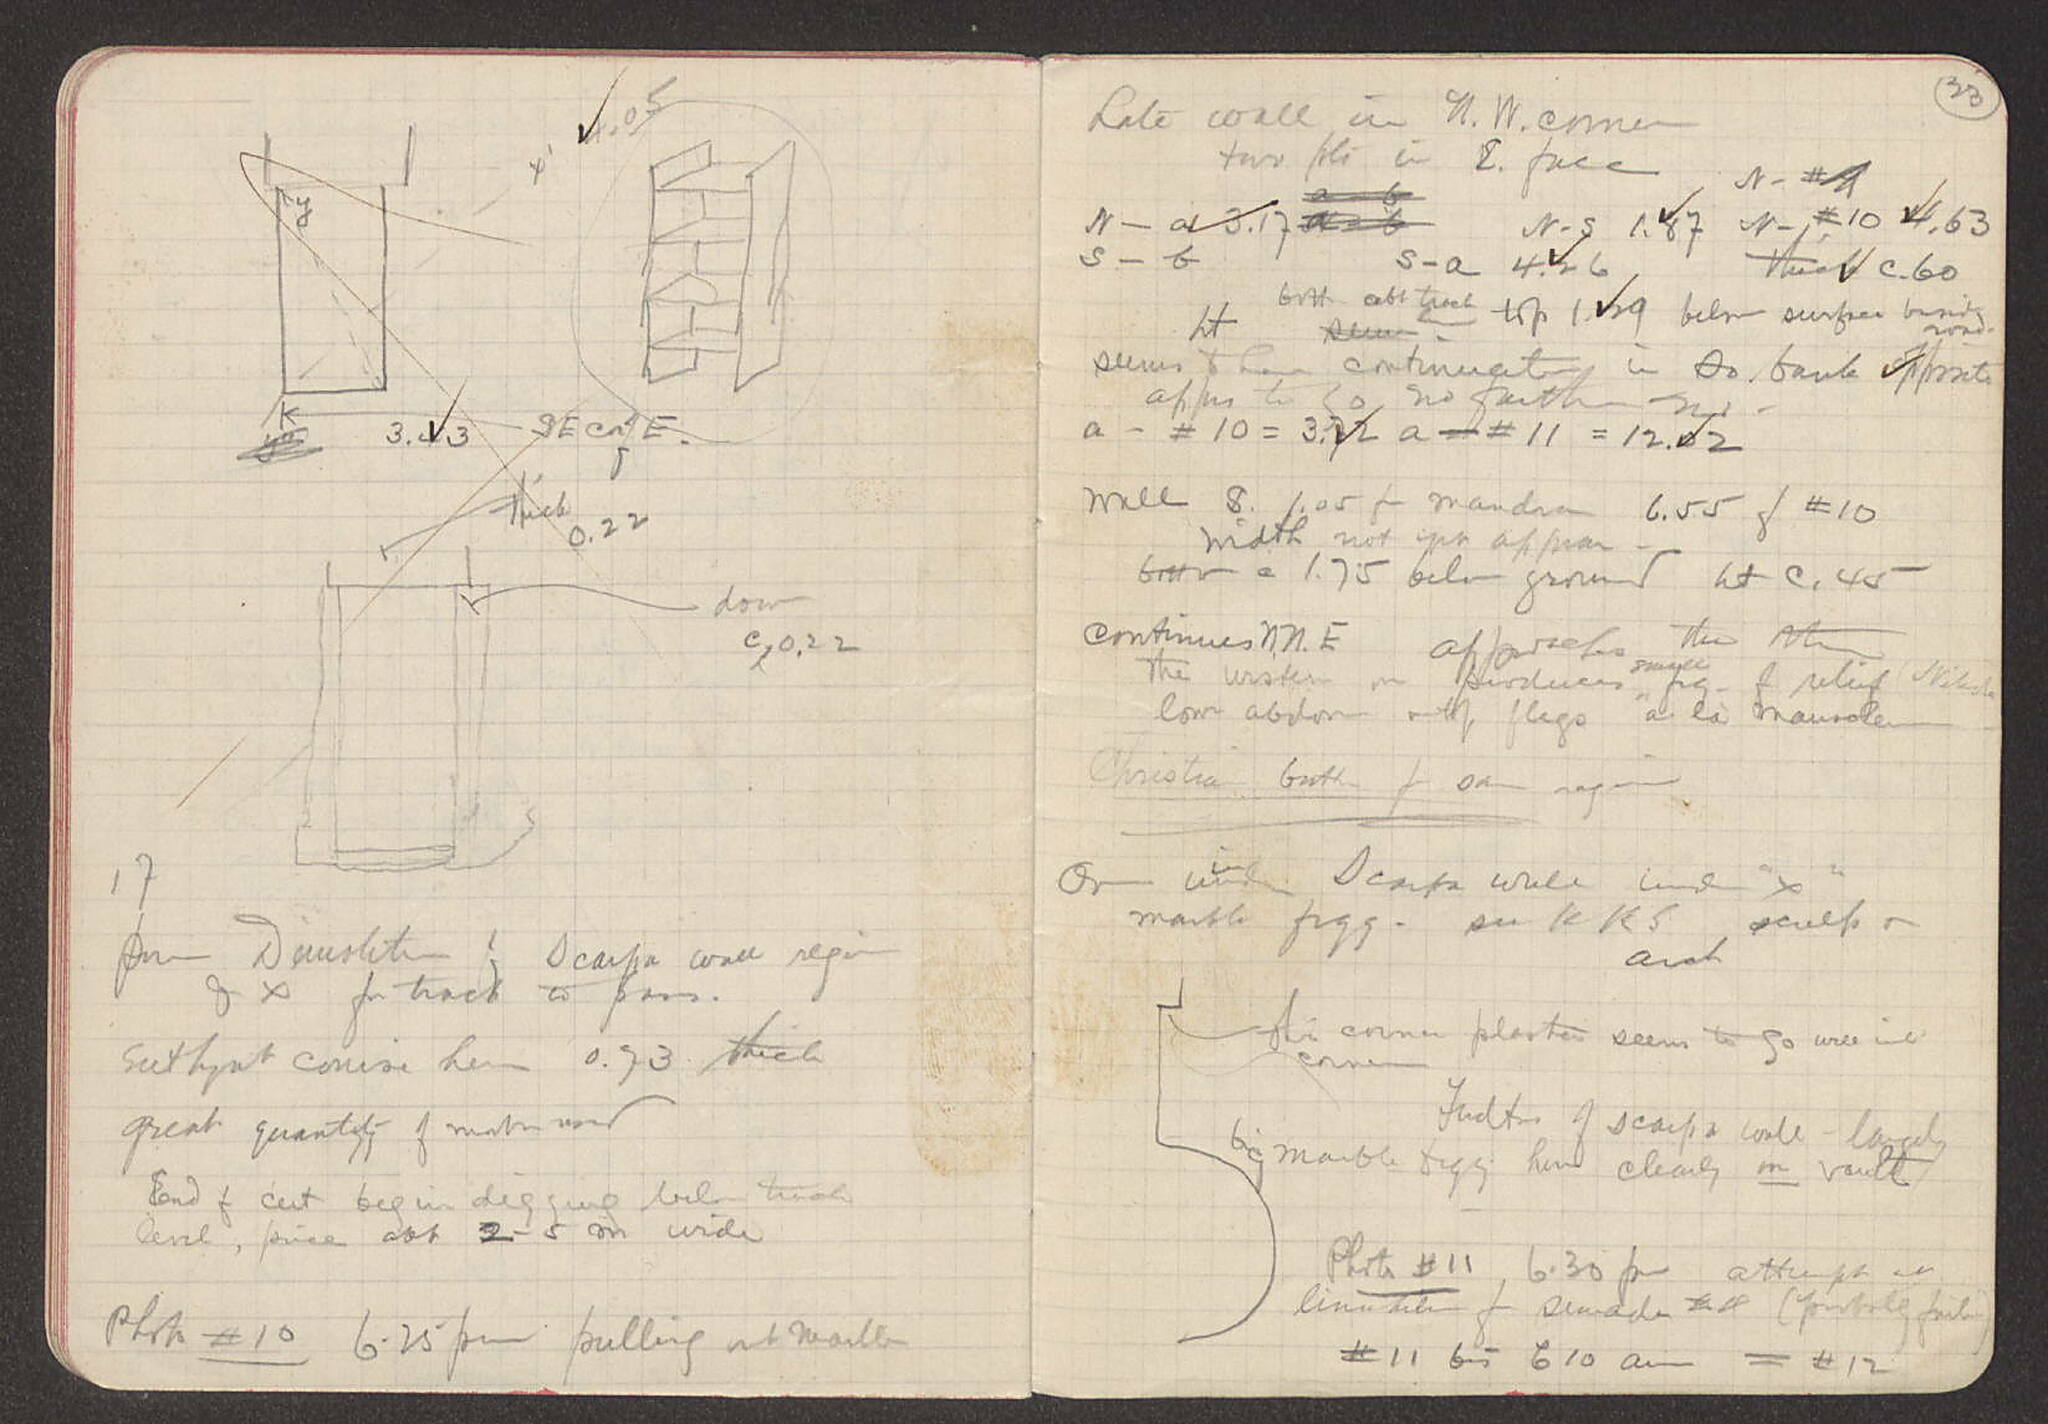 4.05
x'
y
3.43 SE cor E.
thick
0.22
down
c. 0.22
17
Demolition of Scarpa wall region
of x for track to pass.
Euthynt course here 0.93 thick
great quantity of mortar used
End of cut begin digging below track
level, piece abt 2-5 m wide
Photo #10 6.25 pm pulling out marble
23
Late wall in N.W. corner
two pts in E. face
N - #9
a b
N - a 3.17 a - b N-S 1.87 N - #10 4.63
S - b S-a 4.26 thick c. 60
bott abt track
ht seems top 1.29 below surface
seems to have continuation in So. bank opposite
appas to go no farther no.
a - #10 = 3.22 a - #11 = 12.02
Wall 8. 1.05 f mandra 6.55 f #10
Width not yet appar -
bottom c 1.75 below ground ht c. 45
continues N.N.E approaches the other
the western one produces small frg. of relief
low abdom legs a la mausoleum
Christian bott f same region
On under in Scarpa wall under "x"
marble frgg. see KKS sculp or
arch
this corner plaster seems to go well into
corner
Fndtns of scarpa wall - largely
big marble frgg here clearly on vault
Photo #11, 6.30 pm attempt at
(probably failure)
#11 bis 6 10 am = #12